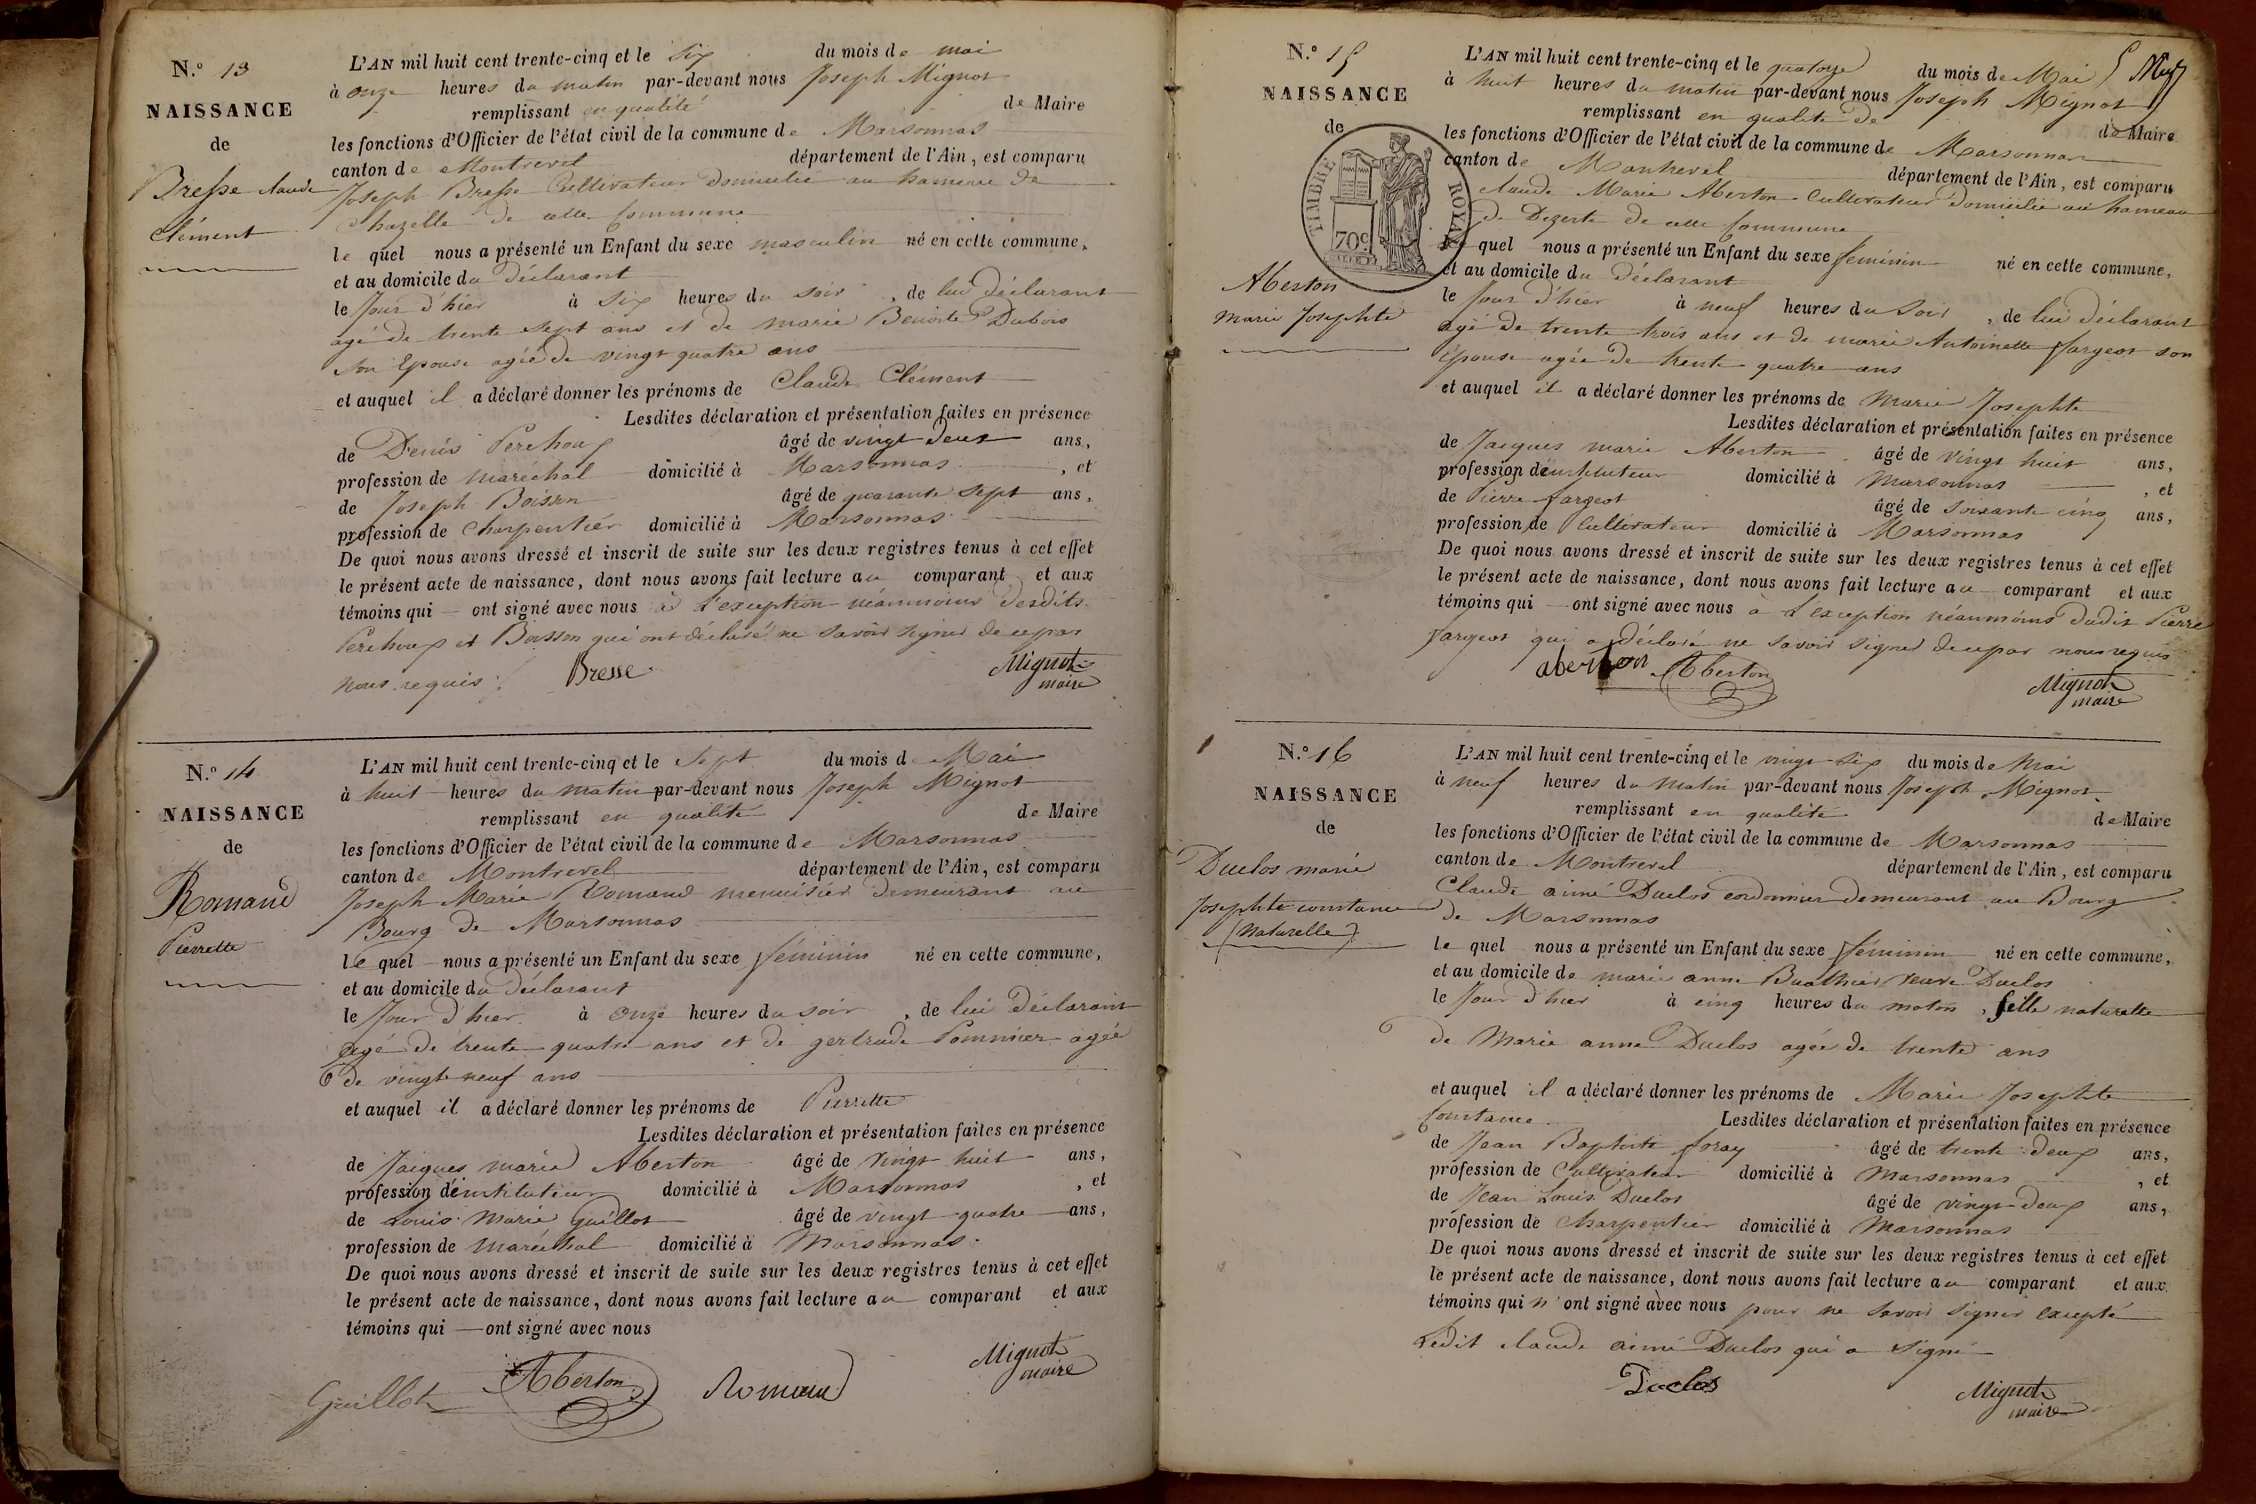 N.º 13
NAISSANCE
de
Bresse claude
Clément
L'AN mil huit cent trente-cinq et le six du mois de mai
à onze heures du matin par-devant nous Joseph Mignot
remplissant en qualité de Maire
les fonctions d'Officier de l'état civil de la commune de Marsonnas
canton de Montrevel département de l'Ain, est comparu
Joseph Bresse Cultivateur domicilié au hameau de
Chazelle de cette Commune
le quel nous a présenté un Enfant du sexe masculin né en cette commune,
et au domicile du déclarant
le Jour d'hier à six heures du soir, de lui déclarant
agé de trente sept ans et de marie Benoite Dubois
son Epouse agée de vingt quatre ans
et auquel il a déclaré donner les prénoms de Claude Clément
Lesdites déclaration et présentation faites en présence
de Denis Perchoux âgé de vingt deux ans,
profession de maréchal domicilié à Marsonnas, et
de Joseph Boisson âgé de quarante sept ans,
profession de Charpentier domicilié à Marsonnas
De quoi nous avons dressé et inscrit de suite sur les deux registres tenus à cet effet
le présent acte de naissance, dont nous avons fait lecture au comparant et aux
témoins qui ont signé avec nous à l'exception néanmoins desdits
Perchoux et Boisson qui ont déclaré ne savoir signer de ce par
nous requis.
Bresse
Mignot
maire
N.º 14
NAISSANCE
de
Romand
Pierrette
L'AN mil huit cent trente-cinq et le sept du mois d Mai
à huit heures du matin par-devant nous Joseph Mignot
remplissant en qualité de Maire
les fonctions d'Officier de l'état civil de la commune de Marsonnas
canton de Montrevel département de l'Ain, est comparu
Joseph Marie Romand menuisier demeurant au
Bourg de Marsonnas
le quel nous a présenté un Enfant du sexe féminin né en cette commune,
et au domicile du déclarant
le Jour d'hier à onze heures du soir, de lui déclarant
agé de trente quatre ans et de gertrude Pommier agée
de vingt neuf ans
et auquel il a déclaré donner les prénoms de Pierrette
Lesdites déclaration et présentation faites en présence
de Jacques marie Aberton âgé de vingt huit ans,
profession d'instituteur domicilié à Marsonnas, et
de Louis Marie Guillot âgé de vingt quatre ans,
profession de maréchal domicilié à Marsonnas.
De quoi nous avons dressé et inscrit de suite sur les deux registres tenus à cet effet
le présent acte de naissance, dont nous avons fait lecture au comparant et aux
témoins qui ont signé avec nous
Guillot Aberton Romand
Mignot
maire
N.º 15
NAISSANCE
de
TIMBRE ROYAL
70c
Aberton
marie Josephte
L'AN mil huit cent trente-cinq et le quatorze du mois de Mai
à huit heures du matin par-devant nous Joseph Mignot
remplissant en qualité de de Maire
les fonctions d'Officier de l'état civil de la commune de Marsonnas
canton de Montrevel département de l'Ain, est comparu
claude Marie Aberton Cultivateur domicilié au hameau
de Dezerte de cette Commune
le quel nous a présenté un Enfant du sexe féminin né en cette commune,
et au domicile du déclarant
le Jour d'hier à neuf heures du soir, de lui déclarant
agé de trente trois ans et de marie Antoinette fargeot son
épouse agée de trente quatre ans
et auquel il a déclaré donner les prénoms de Marie Josephte
Lesdites déclaration et présentation faites en présence
de Jacques marie Aberton âgé de vingt huit ans,
profession d'instituteur domicilié à Marsonnas, et
de Pierre fargeot âgé de soixante cinq ans,
profession de Cultivateur domicilié à Marsonnas
De quoi nous avons dressé et inscrit de suite sur les deux registres tenus à cet effet
le présent acte de naissance, dont nous avons fait lecture au comparant et aux
témoins qui ont signé avec nous à l'exception néanmoins dudit Pierre
fargeot qui a déclaré ne savoir signer de ce par nous requis
aberton Aberton
Mignot
maire
N.º 16
NAISSANCE
de
Duclos marie
Josephte constance
(Naturelle)
L'AN mil huit cent trente-cinq et le vingt-six du mois de Mai
à neuf heures du matin par-devant nous Joseph Mignot
remplissant en qualité de Maire
les fonctions d'Officier de l'état civil de la commune de Marsonnas
canton de Montrevel département de l'Ain, est comparu
Claude aimé Duclos cordonnier demeurant au Bourg
de Marsonnas
le quel nous a présenté un Enfant du sexe féminin né en cette commune,
et au domicile de marie anne Buathier veuve Duclos
le Jour d'hier à cinq heures du matin, fille naturelle
de Marie anne Duclos agée de trente ans
et auquel il a déclaré donner les prénoms de Marie Josephte
Constance Lesdites déclaration et présentation faites en présence
de Jean Baptiste foray âgé de trente deux ans,
profession de Cultivateur domicilié à Marsonnas, et
de Jean Louis Duclos âgé de vingt-deux ans,
profession de Charpentier domicilié à Marsonnas
De quoi nous avons dressé et inscrit de suite sur les deux registres tenus à cet effet
le présent acte de naissance, dont nous avons fait lecture au comparant et aux
témoins qui n'ont signé avec nous pour ne savoir signer excepté
Ledit claude aimé Duclos qui a signé
Duclos
Mignot
maire